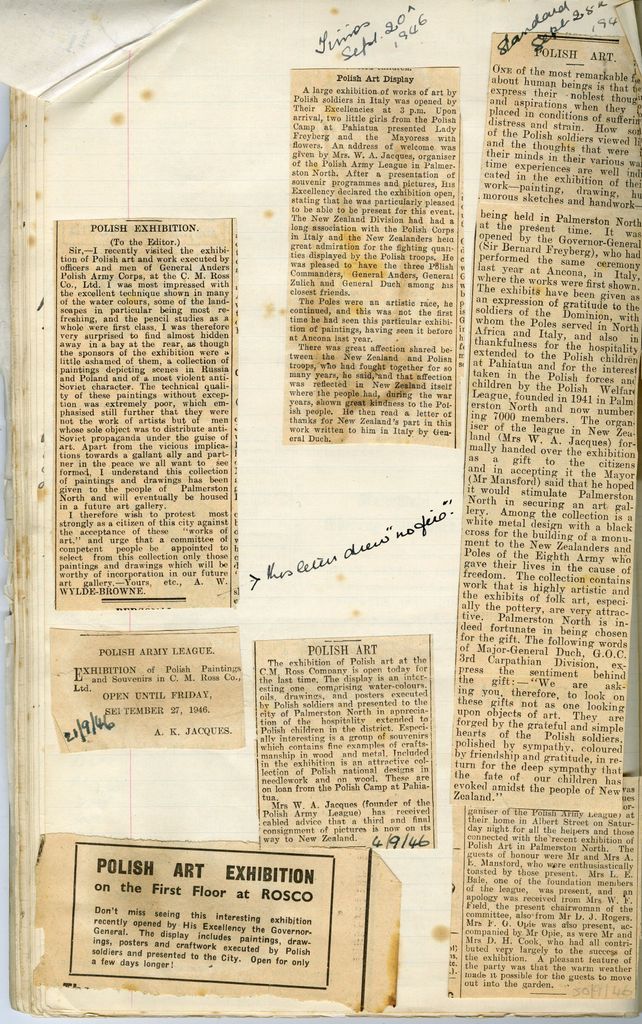 POLISH EXHIBITION.
(To the Editor.)
Sir,—I recently visited the exhibi-
tion of Polish art and work executed by
officers and men of General Anders
Polish Army Corps, at the C. M. Ross
Co., Ltd. I was most impressed with
the excellent technique shown in many
of the water colours, some of the land-
scapes in particular being most re-
freshing, and the pencil studies as a
whole were first class. I was therefore
very surprised to find almost hidden
away in a bay at the rear, as though
the sponsors of the exhibition were a
little ashamed of them, a collection of
paintings depicting scenes in Russia
and Poland and of a most violent anti-
Soviet character. The technical quali-
ty of these paintings without excep-
tion was extremely poor, which em-
phasised still further that they were
not the work of artists but of men
whose sole object was to distribute anti-
Soviet propaganda under the guise of
art. Apart from the vicious implica-
tions towards a gallant ally and part-
ner in the peace we all want to see
formed, I understand this collection
of paintings and drawings has been
given to the people of Palmerston
North and will eventually be housed
in a future art gallery.
I therefore wish to protest most
strongly as a citizen of this city against
the acceptance of these "works of
art," and urge that a committee of
competent people be appointed to
select from this collection only those
paintings and drawings which will be
worthy of incorporation in our future
art gallery.—Yours, etc., A. W.
WYLDE-BROWNE.
POLISH ARMY LEAGUE.
EXHIBITION of Polish Paintings
and Souvenirs in C. M. Ross Co.,
Ltd.
OPEN UNTIL FRIDAY,
SEPTEMBER 27, 1946.
A. K. JACQUES.
21/9/46
POLISH ART EXHIBITION
on the First Floor at ROSCO
Don't miss seeing this interesting exhibition
recently opened by His Excellency the Governor-
General. The display includes paintings, draw-
ings, posters and craftwork executed by Polish
soldiers and presented to the City. Open for only
a few days longer!
Times
Sept. 20th
1946
Polish Art Display
A large exhibition of works of art by
Polish soldiers in Italy was opened by
Their Excellencies at 3 p.m. Upon
arrival, two little girls from the Polish
Camp at Pahiatua presented Lady
Freyberg and the Mayoress with
flowers. An address of welcome was
given by Mrs. W. A. Jacques, organiser
of the Polish Army League in Palmer-
ston North. After a presentation of
souvenir programmes and pictures, His
Excellency declared the exhibition open,
stating that he was particularly pleased
to be able to be present for this event.
The New Zealand Division had had a
long association with the Polish Corps
in Italy and the New Zealanders held
great admiration for the fighting quali-
ties displayed by the Polish troops. He
was pleased to have the three Polish
Commanders, General Anders, General
Zulich and General Duch among his
closest friends.
The Poles were an artistic race, he
continued, and this was not the first
time he had seen this particular exhibi-
tion of paintings, having seen it before
at Ancona last year.
There was great affection shared be-
tween the New Zealand and Polish
troops, who had fought together for so
many years, he said, and that affection
was reflected in New Zealand itself
where the people had, during the war
years, shown great kindness to the Pol-
ish people. He then read a letter of
thanks for New Zealand's part in this
work written to him in Italy by Gen-
eral Duch.
> this letter drew "no fire".
POLISH ART
The exhibition of Polish art at the
C.M. Ross Company is open today for
the last time. The display is an inter-
esting one comprising water-colours,
oils, drawings, and posters executed
by Polish soldiers and presented to the
city of Palmerston North in apprecia-
tion of the hospitality extended to
Polish children in the district. Especi-
ally interesting is a group of souvenirs
which contains fine examples of crafts-
manship in wood and metal. Included
in the exhibition is an attractive col-
lection of Polish national designs in
needlework and on wood. These are
on loan from the Polish Camp at Pahia-
tua.
Mrs W. A. Jacques (founder of the
Polish Army League) has received
cabled advice that a third and final
consignment of pictures is now on its
way to New Zealand.
4/9/46
Standard
Sept 28th
POLISH ART.
ONE of the most remarkable
about human beings is that
express their noblest
and aspirations when they
placed in conditions of
distress and strain. How
of the Polish soldiers viewed
and the thoughts that were
their minds in their various
time experiences are well indi-
cated in the exhibition of their
work—painting, drawing, hu-
morous sketches and handwork—
being held in Palmerston North
at the present time. It was
opened by the Governor-General
(Sir Bernard Freyberg), who had
performed the same ceremony
last year at Ancona, in Italy,
where the works were first shown.
The exhibits have been given as
an expression of gratitude to the
soldiers of the Dominion, with
whom the Poles served in North
Africa and Italy, and also in
thankfulness for the hospitality
extended to the Polish children
at Pahiatua and for the interest
taken in the Polish forces and
children by the Polish Welfare
League, founded in 1941 in Palm-
erston North and now number-
ing 7000 members. The organ-
iser of the league in New Zea-
land (Mrs W. A. Jacques) for-
mally handed over the exhibition
as a gift to the citizens
and in accepting it the Mayor
(Mr Mansford) said that he hoped
it would stimulate Palmerston
North in securing an art gal-
lery. Among the collection is a
white metal design with a black
cross for the building of a monu-
ment to the New Zealanders and
Poles of the Eighth Army who
gave their lives in the cause of
freedom. The collection contains
work that is highly artistic and
the exhibits of folk art, especi-
ally the pottery, are very attrac-
tive. Palmerston North is in-
deed fortunate in being chosen
for the gift. The following words
of Major-General Duch, G.O.C.
3rd Carpathian Division, ex-
press the sentiment behind
the gift:—"We are ask-
ing you, therefore, to look on
these gifts not as one looking
upon objects of art. They are
forged by the grateful and simple
hearts of the Polish soldiers,
polished by sympathy, coloured
by friendship and gratitude, in re-
turn for the deep sympathy that
the fate of our children has
evoked amidst the people of New
Zealand."
ganiser of the Polish Army League) at
their home in Albert Street on Satur-
day night for all the helpers and those
connected with the recent exhibition of
Polish Art in Palmerston North. The
guests of honour were Mr and Mrs A.
E. Mansford, who were enthusiastically
toasted by those present. Mrs L. E.
Bale, one of the foundation members
of the league, was present, and an
apology was received from Mrs W. F.
Field, the present chairwoman of the
committee, also from Mr L. J. Rogers.
Mrs F. G. Opie was also present, ac-
companied by Mr Opie, as were Mr and
Mrs D. H. Cook, who had all contri-
buted very largely to the success of
the exhibition. A pleasant feature of
the party was that the warm weather
made it possible for the guests to move
out into the garden.
30/9/46